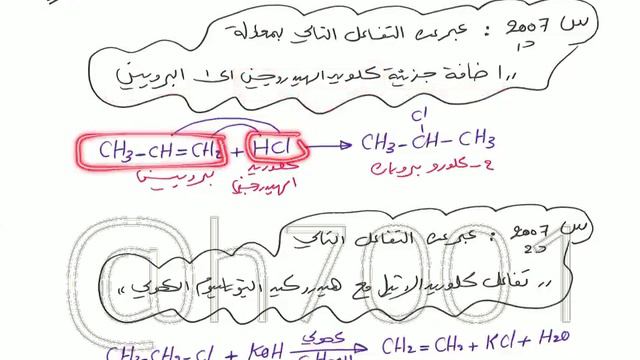 س 2007 د1 : عبر عن التفاعل التالي بمعادلة
,, اضافة جزيئة كلوريد الهيدروجين الى البروبين
CH3-CH=CH2 + HCl → CH3-CH-CH3
Cl
بروبين كلوريد الهيدروجين 2-كلورو بروبان
@h7001
س 2007 د2 : عبر عن التفاعل التالي
,, تفاعل كلوريد الاثيل مع هيدروكسيد البوتاسيوم الكحولي ,,
CH3CH2-Cl + KOH كحولي → CH2=CH2 + KCl + H2O